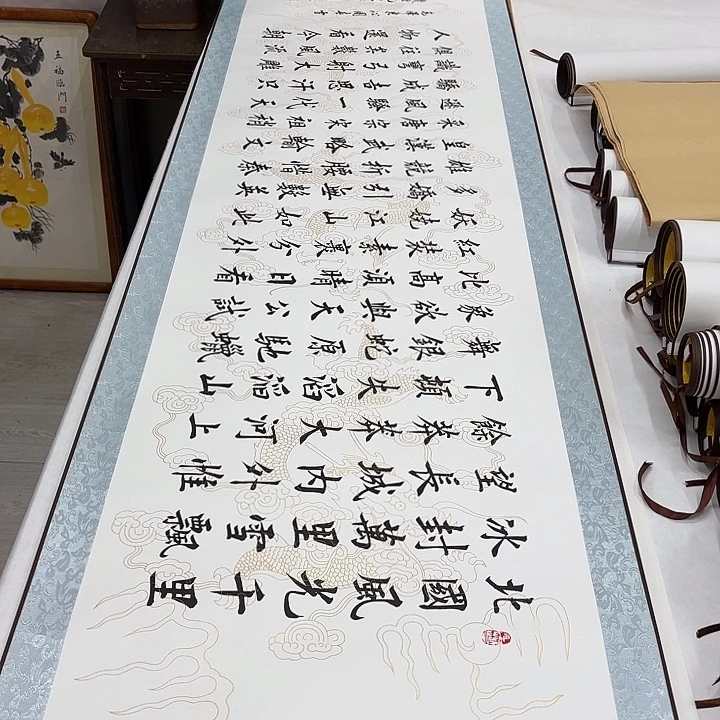 北國風光千里
冰封萬里雪飄
望長城內外惟
餘莽莽大河上
下頓失滔滔山
舞銀蛇原馳蠟
象欲與天公試
比高須晴日看
紅裝素裹分外
妖嬈江山如此
多嬌引無數英
雄競折腰惜秦
皇漢武略輸文
采唐宗宋祖稍
遜風騷一代天
驕成吉思汗只
識彎弓射大雕
俱往矣數風流
人物還看今朝
五福臨門